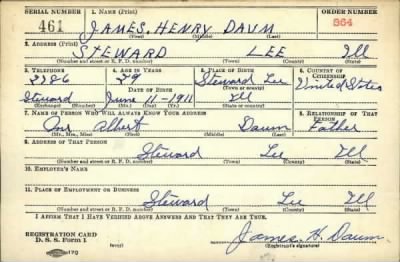 SERIAL NUMBER 1. NAME (Print) ORDER NUMBER
461 JAMES, HENRY DAUM 864
(First) (Middle) (Last)
2. ADDRESS (Print)
STEWARD LEE Ill
(Number and street or R. F. D. number) (Town) (County) (State)
3. TELEPHONE 4. AGE IN YEARS 5. PLACE OF BIRTH 6. COUNTRY OF CITIZENSHIP
29 Steward Lee United States
Steward DATE OF BIRTH June 11-1911 Ill
(Exchange) (Number) (Mo.) (Day) (Yr.) (State or country)
7. NAME OF PERSON WHO WILL ALWAYS KNOW YOUR ADDRESS 8. RELATIONSHIP OF THAT PERSON
Albert Daum Father
(Mr., Mrs., Miss) (First) (Middle) (Last)
9. ADDRESS OF THAT PERSON
Steward Lee Ill
(Number and street or R. F. D. number) (Town) (County) (State)
10. EMPLOYER'S NAME
11. PLACE OF EMPLOYMENT OR BUSINESS
Steward Lee Ill
(Number and street or R. F. D. number) (Town) (County) (State)
I AFFIRM THAT I HAVE VERIFIED ABOVE ANSWERS AND THAT THEY ARE TRUE.
REGISTRATION CARD
D. S. S. Form 1
James H. Daum
(Registrant's signature)